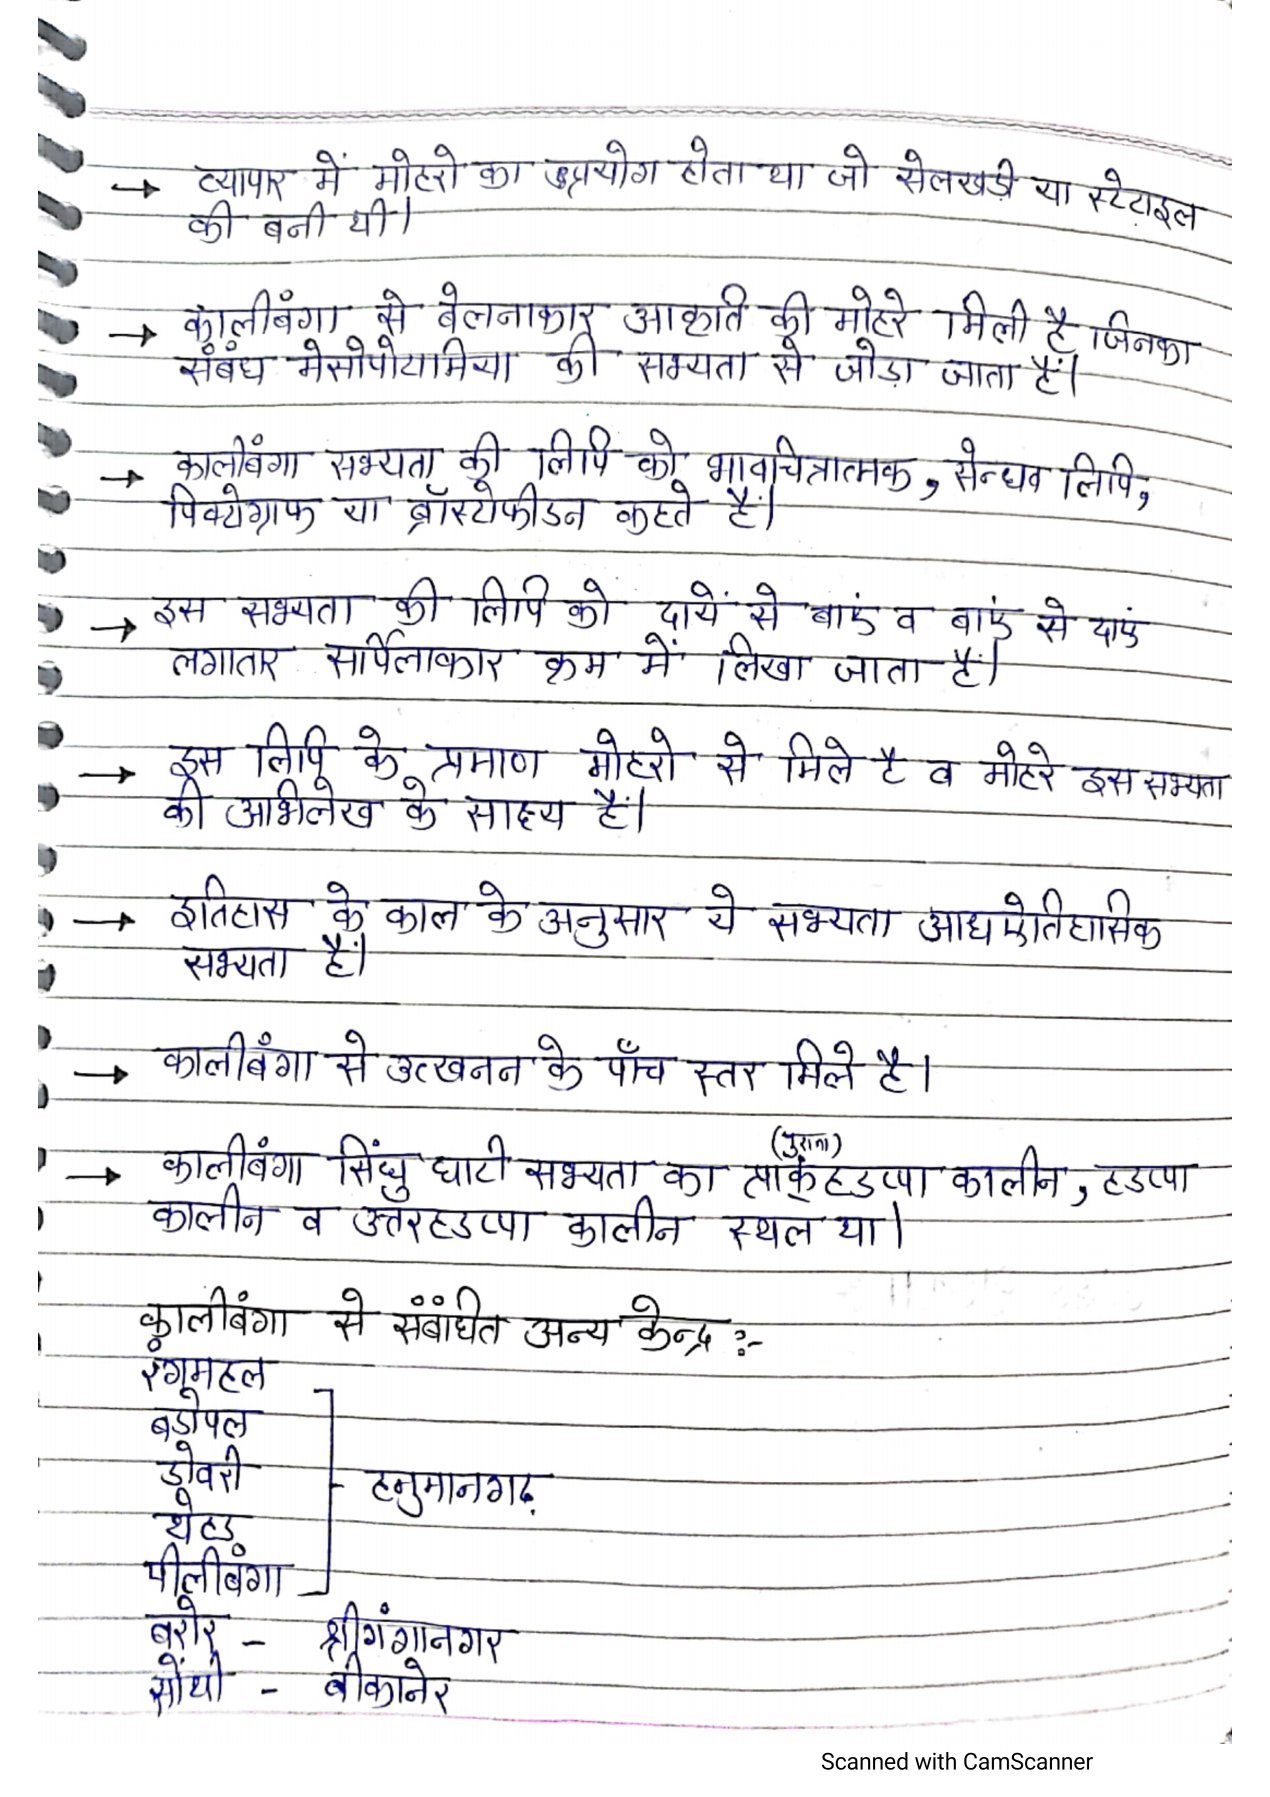 → व्यापार में मोहरो का उप्रयोग होता था जो सेलखडी या स्टेटाइल
की बनी थी।
→ कालीबंगा से बेलनाकार आकृति की मोहरे मिली है जिनका
संबंध मेसोपोटामिया की सभ्यता से जोड़ा जाता हैं।
→ कालीबंगा सभ्यता की लिपि को भावचित्रात्मक, सेन्धव लिपि,
पिक्टोग्राफ या ब्रॉस्टोफीडन कहते हैं।
→ इस सभ्यता की लिपि को दायें से बाएं व बाएं से दाएं
लगातार सर्पिलाकार क्रम में लिखा जाता हैं।
→ इस लिपि के प्रमाण मोहरो से मिले है व मोहरे इस सभ्यता
की अभिलेख के साक्ष्य हैं।
→ इतिहास के काल के अनुसार ये सभ्यता आद्यऐतिहासिक
सभ्यता हैं।
→ कालीबंगा से उत्खनन के पाँच स्तर मिले है।
(पुराना)
→ कालीबंगा सिंधु घाटी सभ्यता का प्राक्हडप्पा कालीन, हडप्पा
कालीन व उत्तरहडप्पा कालीन स्थल था।
कालीबंगा से संबंधित अन्य केन्द्र :-
रंगमहल
बडोपल
डोवरी
- हनुमानगढ़
थेहड़
पीलीबंगा
बरोर - श्रीगंगानगर
सोंथी - बीकानेर
Scanned with CamScanner